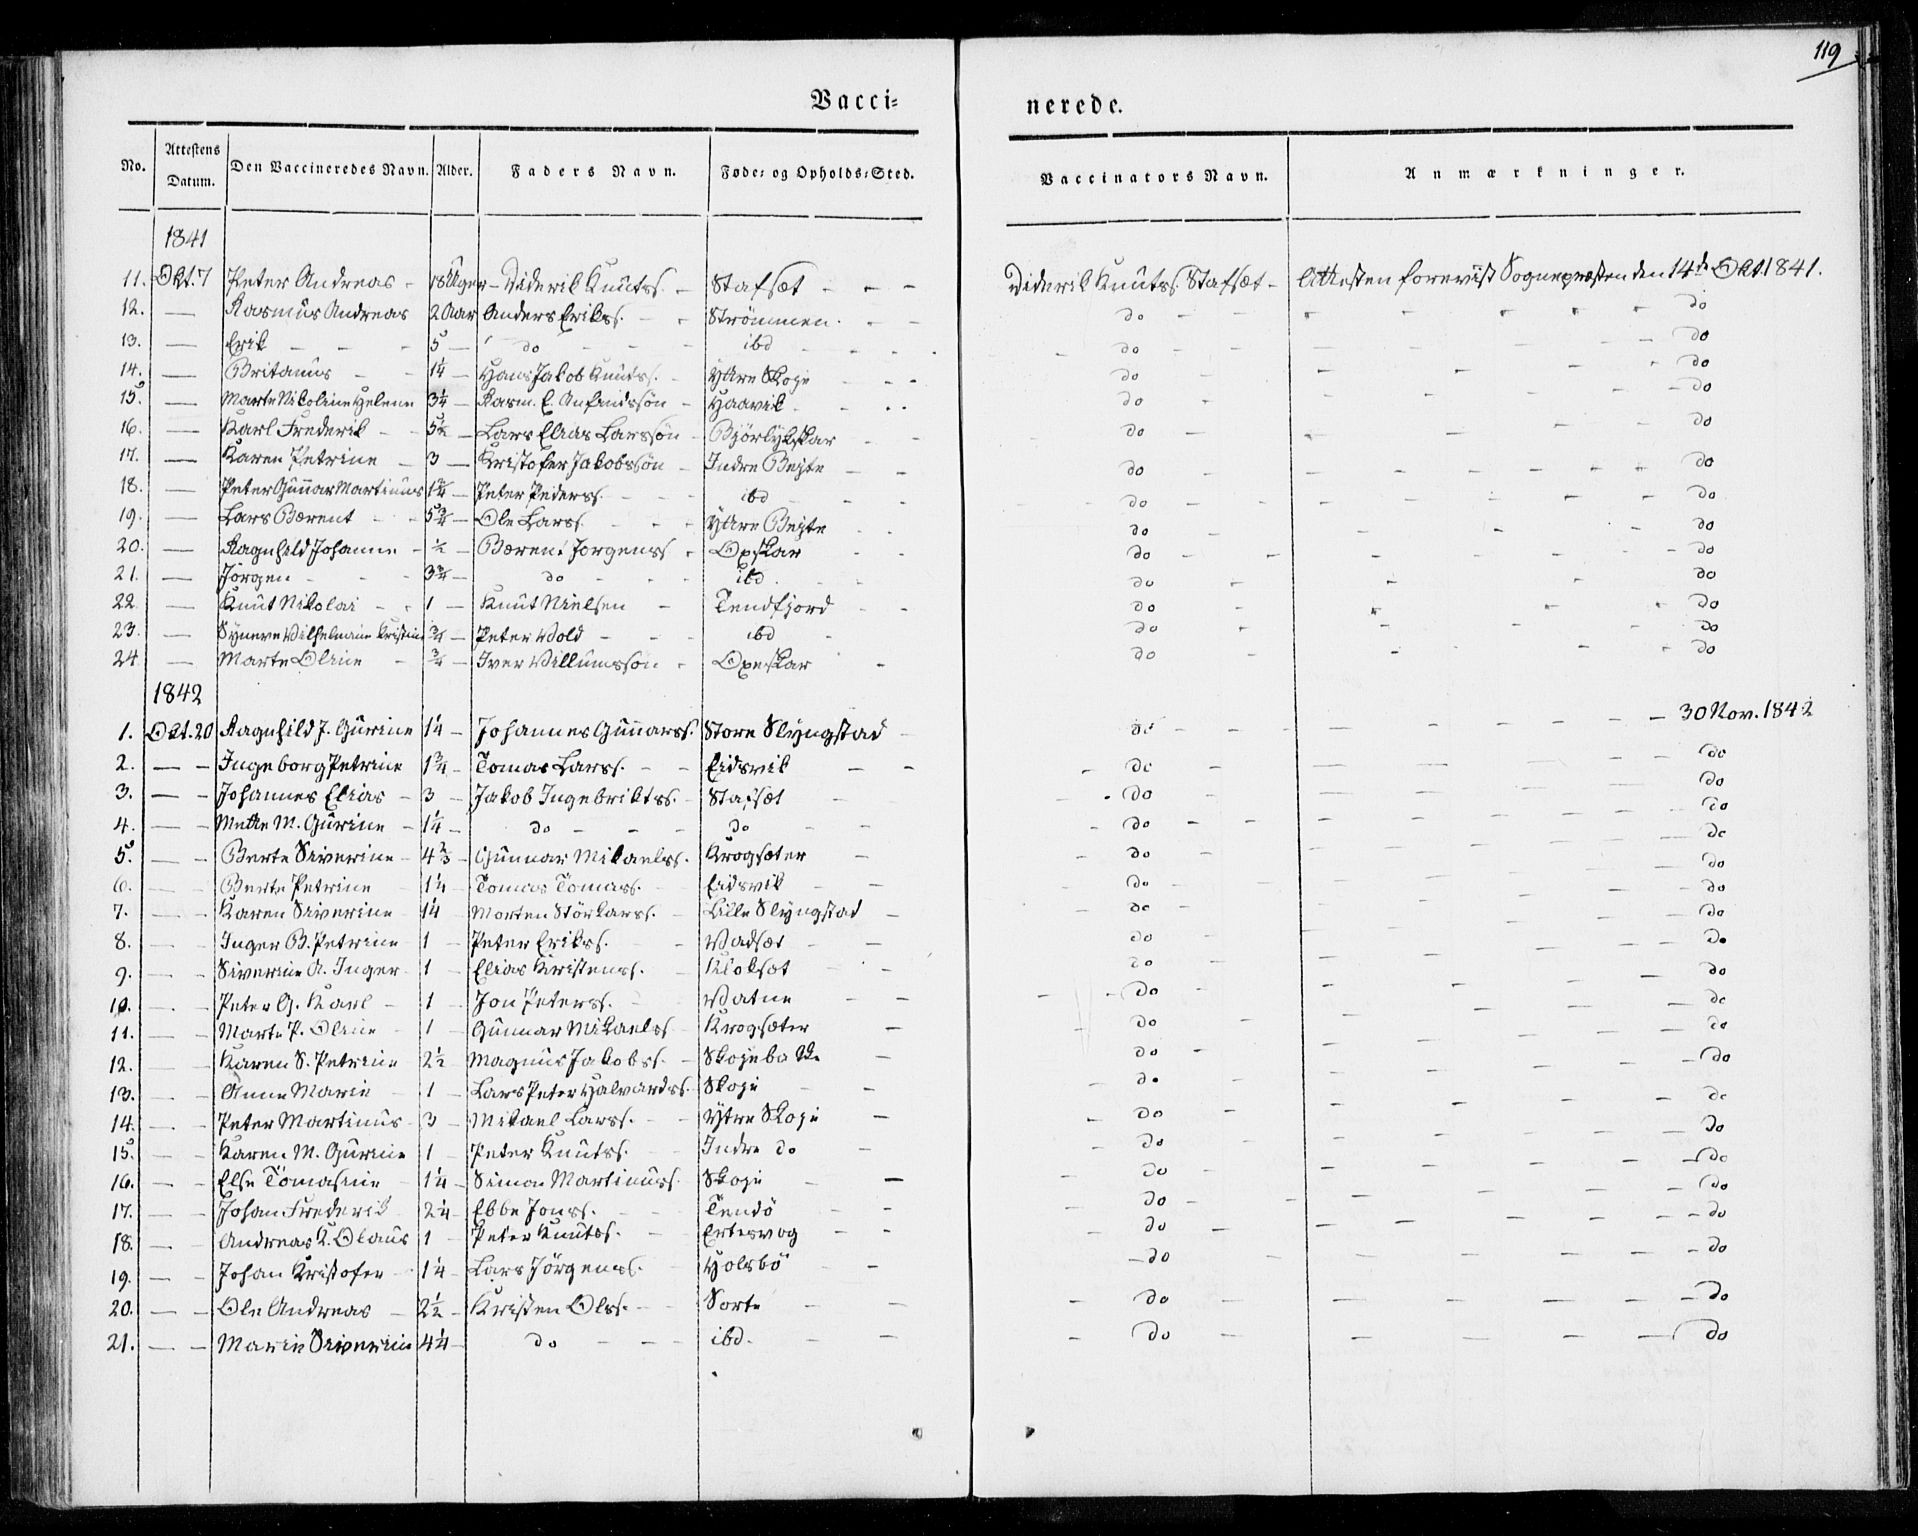 119
Vacci= nerede.
No. Attestens Datum. Den Vaccineredes Navn. Alder. Faders Navn. Føde= og Opholds=Sted. Vaccinators Navn. Anmærkninger.
1841
11. Okt. 7 Peter Andreas - 18 Uger - Diderik Knutss. - Stafsæt - - - Diderik Knutss. Stafsæt - Attesten forevist Sognepræsten den 14de Okt. 1841.
12. — Rasmus Andreas 2 Aar Anders Erikss. - - Strømmen - - do - - do
13. — Erik - - - 5 — do - - - ibd - - do - - do
14. — Britanus - - 1¼ — Hans Jakob Knutss. - Yttre Skoje - - - do - - do
15. — Marte Nikoline Helene 3¼ — Rasm. E. Anfindssøn - Haavik - - - do - - do
16. — Karl Frederik - - 5½ — Lars Elias Larssøn - Bjørlykskar - - do - - do
17. — Karen Petrine - 3 — Kristofer Jakobssøn - Indre Bejte - - do - - do
18. — Peter Gunnar Martinus 1¾ — Peter Pederss. - - ibd - - do - - do
19. — Lars Bærent - - 5¾ — Ole Larss. - - Yttre Bejte - - do - - do
20. — Ragnhild Johanne - ½ — Bærent Jørgenss. - Opskar - - do - - do
21. — Jørgen - - - 3¾ — do - - - ibd - - do - - do
22. — Knut Nikolai - - 1 — Knut Nielsen - Tendfjord - - do - - do
23. — Syneve Wilhelmine Kristine ¾ — Peter Wold - - - ibd - do - - do
24. — Marte Oline - ¾ — Iver Willumssøn - Opeskar - do - - do
1842
1. Okt. 20 Ragnhild J. Gurine 1¼ — Johannes Gunnarss. Store Slyngstad - do - - — 30 Nov. 1842
2. — — Ingeborg Petrine 1¾ — Tomas Larss. - - Eidsvik — - do - - do
3. — — Johannes Elias - 3 — Jakob Ingebriktss. - Stafsæt - do - - do
4. — — Mette M. Gurine - 1¼ — do - - - do - - do - - do
5. — — Berte Siverine - 4⅔ — Gunnar Mikaelss. Krogsæter - do - - do
6. — — Berte Petrine - 1¼ — Tomas Tomass. - Eidsvik - - do - - do
7. — — Karen Siverine 1¼ — Morten Størkarss. - Lille Slyngstad - do - - do
8. — — Inger B. Petrine - 1 - Peter Erikss. - - Vadsæt - - do - - do
9. — — Siverine A. Inger - 1 - Elias Kristenss. - Kloksæt - - do - - do
10. — — Peter G. Karl - 1 - Jon Peterss. - Vatne - - do - - do
11. — — Marte P. Oline - 1 - Gunnar Mikaelss. Krogsæter - do - - do
12. — — Karen S. Petrine 2½ Magnus Jakobss. - Skojebakke - do - - do
13. — — Anne Marie - 1 - Lars Peter Halvardss. Skoje - - do - - do
14. — — Peter Martinus - 3 - Mikael Larss. - - Ytre Skoje - do - - do
15. — — Karen M. Gurine 1 - Peter Knutss. - Indre do - do - - do
16. — — Else Tomasine - 1¼ - Simon Martinuss. Skoje - - do - - do
17. — — Johan Frederik - 2¼ - Ebbe Jonss. - - Tendø - - do - - do
18. — — Andreas K. Olaus 1 - Peter Knutss. - Ertesvog - - do - - do
19. — — Johan Kristofer - 1¼ - Lars Jørgenss. - Holsbø - - do - - do
20. — — Ole Andreas - 2½ - Kristen Olss. - Sorte - - do - - do
21. — — Marie Siverine 4¼ - do - - - ibd - - - do - - do